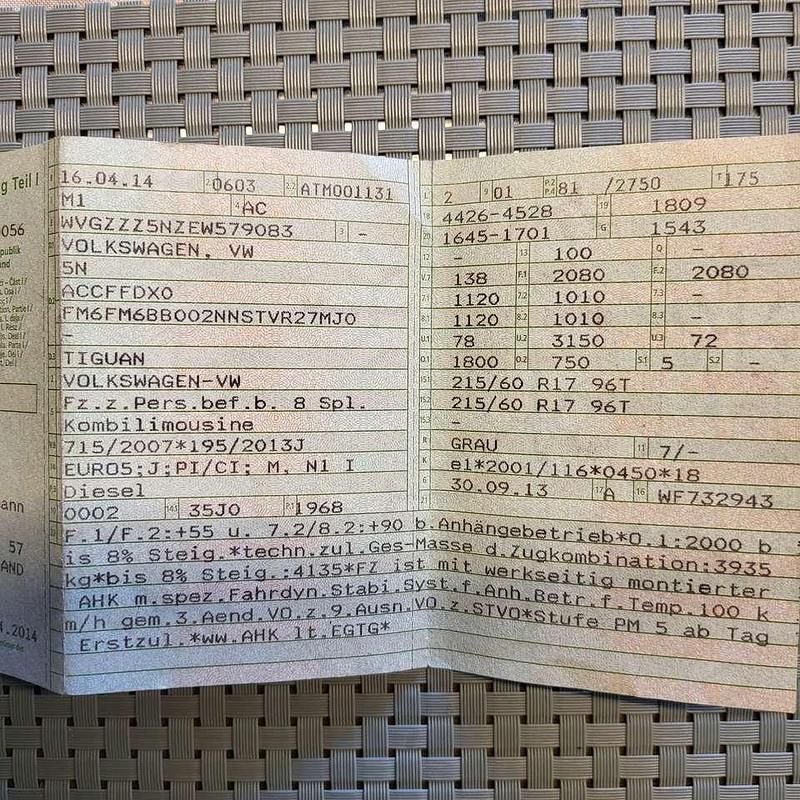 g Teil I
056
publik
and
ann
57
AND
.2014
16.04.14 2 0603 2.2 ATM001131
M1 4 AC
WVGZZZ5NZEW579083 3 -
VOLKSWAGEN, VW
5N
ACCFFDX0
FM6FM6BB002NNSTVR27MJ0
-
TIGUAN
VOLKSWAGEN-VW
Fz.z.Pers.bef.b. 8 Spl.
Kombilimousine
715/2007*195/2013J
EURO5;J;PI/CI; M, N1 I
Diesel
0002 14.1 35J0 P.1 1968
L 2 9 01 P.2 P.4 81 /2750 T 175
18 4426-4528 19 1809
20 1645-1701 G 1543
12 - 13 100 Q -
V.7 138 F.1 2080 F.2 2080
7.1 1120 7.2 1010 7.3 -
8.1 1120 8.2 1010 8.3 -
U.1 78 U.2 3150 U.3 72
O.1 1800 O.2 750 S.1 5 S.2 -
15.1 215/60 R17 96T
15.2 215/60 R17 96T
15.3 -
R GRAU 11 7/-
K e1*2001/116*0450*18
6 30.09.13 17 A 16 WF732943
21
F.1/F.2:+55 u. 7.2/8.2:+90 b.Anhängebetrieb*O.1:2000 b
is 8% Steig.*techn.zul.Ges-Masse d.Zugkombination:3935
kg*bis 8% Steig.:4135*FZ ist mit werkseitig montierter
AHK m.spez.Fahrdyn.Stabi.Syst.f.Anh.Betr.f.Temp.100 k
m/h gem.3.Aend.VO.z.9.Ausn.VO.z.STVO*Stufe PM 5 ab Tag
Erstzul.*ww.AHK lt.EGTG*